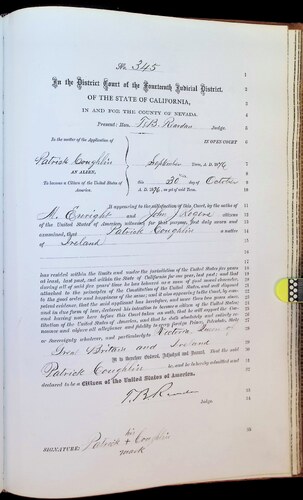 No. 345
In the District Court of the Fourteenth Judicial District,
OF THE STATE OF CALIFORNIA,
IN AND FOR THE COUNTY OF NEVADA.
Present: Hon. T.B. Reardan Judge.
In the matter of the Application of
IN OPEN COURT
Patrick Coughlin
September Term, A. D. 1876
AN ALIEN,
To become a Citizen of the United States of America.
this 30th day of October
A. D. 1876, as yet of said Term.
It appearing to the satisfaction of this Court, by the oaths of
M. Enright and John J. citizens
of the United States of America, witnesses for that purpose, first duly sworn and
examined, that Patrick Coughlin a native
of Ireland
has resided within the limits and under the jurisdiction of the United States five years
at least, last past, and within the State of California for one year, last past; and that
during all of said five years' time he has behaved as a man of good moral character,
attached to the principles of the Constitution of the United States, and well disposed
to the good order and happiness of the same; and it also appearing to the Court, by com-
petent evidence, that the said applicant has heretofore, and more than two years since,
and in due form of law, declared his intention to become a citizen of the United States;
and having now here before this Court taken an oath that he will support the Con-
stitution of the United States of America, and that he doth absolutely and entirely re-
nounce and abjure all allegiance and fidelity to every foreign Prince, Potentate, State
or Sovereignty whatever, and particularly to Victoria Queen of
Great Britain and Ireland
It is therefore Ordered, Adjudged and Decreed, That the said
Patrick Coughlin be, and he is hereby admitted and
declared to be a Citizen of the United States of America.
T.B. Reardan
Judge.
SIGNATURE: Patrick his + mark Coughlin
1
2
3
4
5
6
7
8
9
10
11
12
13
14
15